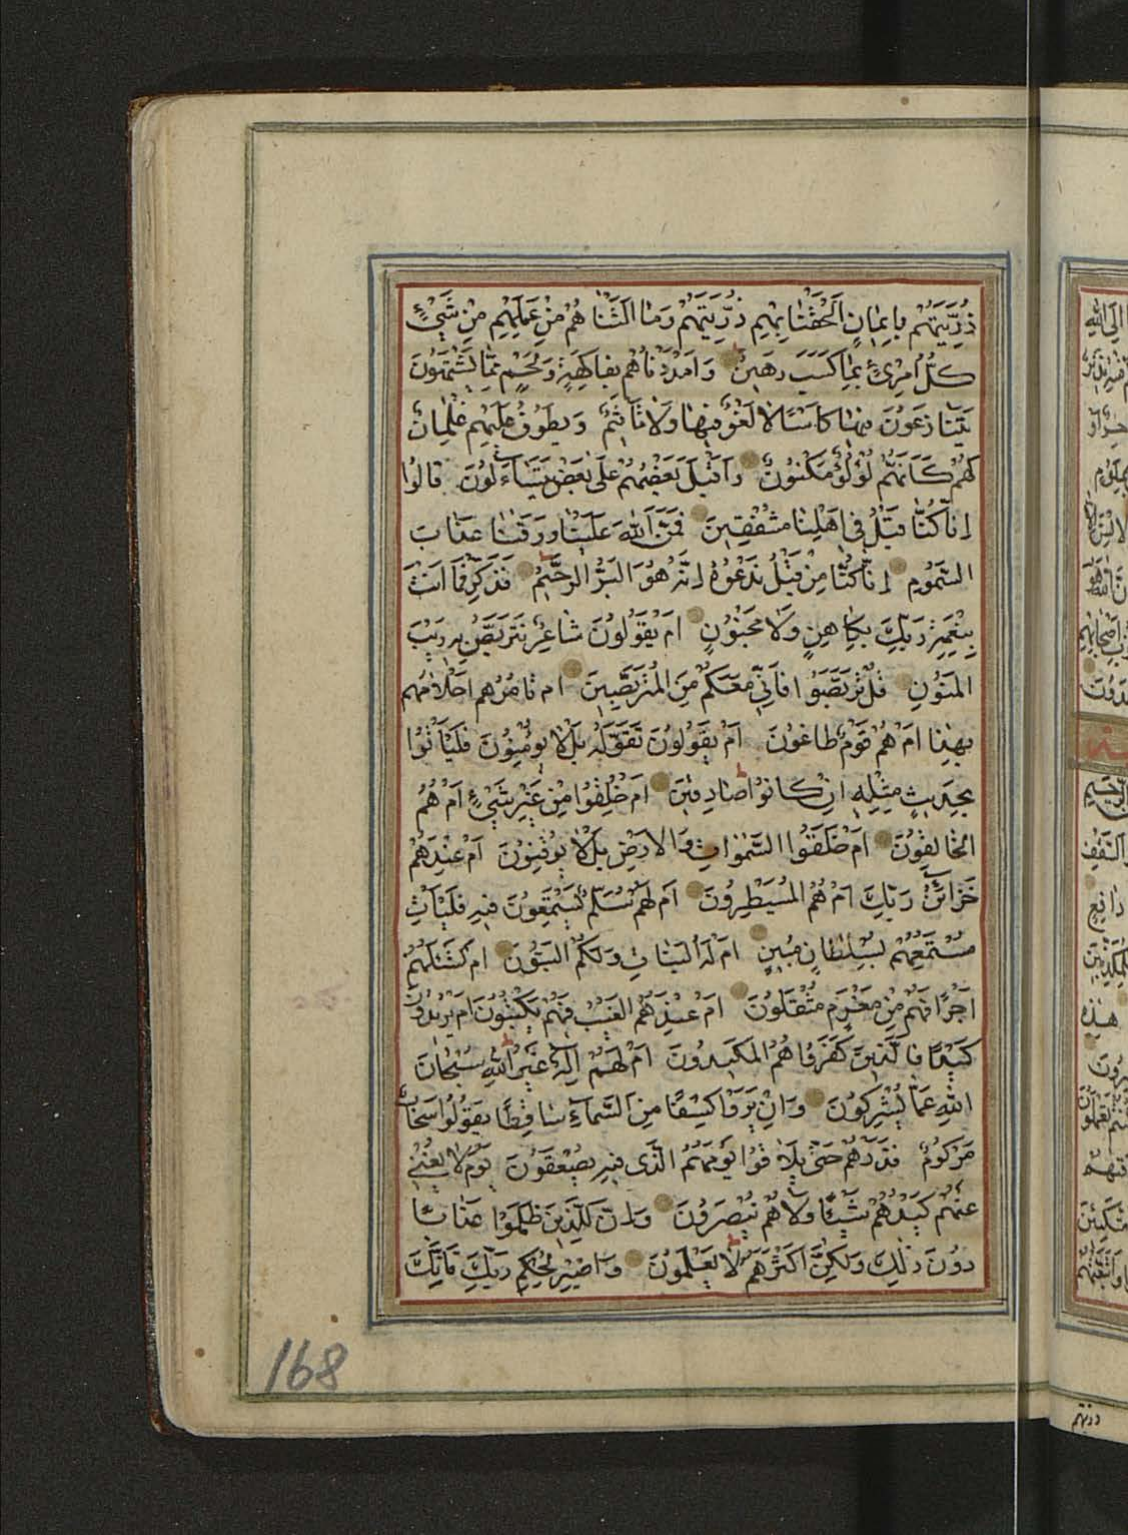 ذُرِّيَّتُهُمْ بِاِيمَانٍ اَلْحَقْنَا بِهِمْ ذُرِّيَّتَهُمْ وَمَا اَلَتْنَاهُمْ مِنْ عَمَلِهِمْ مِنْ شَيْءٍ
كُلُّ امْرِئٍ بِمَا كَسَبَ رَهِينٌ وَاَمْدَدْنَاهُمْ بِفَاكِهَةٍ وَلَحْمٍ مِمَّا يَشْتَهُونَ
يَتَنَازَعُونَ فِيهَا كَاْسًا لَا لَغْوٌ فِيهَا وَلَا تَاْثِيمٌ وَيَطُوفُ عَلَيْهِمْ غِلْمَانٌ
لَهُمْ كَاَنَّهُمْ لُؤْلُؤٌ مَكْنُونٌ وَاَقْبَلَ بَعْضُهُمْ عَلَى بَعْضٍ يَتَسَآءَلُونَ قَالُوا
اِنَّا كُنَّا قَبْلُ فِي اَهْلِنَا مُشْفِقِينَ فَمَنَّ اللّٰهُ عَلَيْنَا وَوَقَانَا عَذَابَ
السَّمُومِ اِنَّا كُنَّا مِنْ قَبْلُ نَدْعُوهُ اِنَّهُ هُوَ الْبَرُّ الرَّحِيمُ فَذَكِّرْ فَمَا اَنْتَ
بِنِعْمَةِ رَبِّكَ بِكَاهِنٍ وَلَا مَجْنُونٍ اَمْ يَقُولُونَ شَاعِرٌ نَتَرَبَّصُ بِهِ رَيْبَ
الْمَنُونِ قُلْ تَرَبَّصُوا فَاِنِّي مَعَكُمْ مِنَ الْمُتَرَبِّصِينَ اَمْ تَاْمُرُهُمْ اَحْلَامُهُمْ
بِهٰذَا اَمْ هُمْ قَوْمٌ طَاغُونَ اَمْ يَقُولُونَ تَقَوَّلَهُ بَلْ لَا يُؤْمِنُونَ فَلْيَاْتُوا
بِحَدِيثٍ مِثْلِهِ اِنْ كَانُوا صَادِقِينَ اَمْ خُلِقُوا مِنْ غَيْرِ شَيْءٍ اَمْ هُمُ
الْخَالِقُونَ اَمْ خَلَقُوا السَّمٰوَاتِ وَالْاَرْضَ بَلْ لَا يُوقِنُونَ اَمْ عِنْدَهُمْ
خَزَآئِنُ رَبِّكَ اَمْ هُمُ الْمُسَيْطِرُونَ اَمْ لَهُمْ سُلَّمٌ يَسْتَمِعُونَ فِيهِ فَلْيَاْتِ
مُسْتَمِعُهُمْ بِسُلْطَانٍ مُبِينٍ اَمْ لَهُ الْبَنَاتُ وَلَكُمُ الْبَنُونَ اَمْ تَسْئَلُهُمْ
اَجْرًا فَهُمْ مِنْ مَغْرَمٍ مُثْقَلُونَ اَمْ عِنْدَهُمُ الْغَيْبُ فَهُمْ يَكْتُبُونَ اَمْ يُرِيدُونَ
كَيْدًا فَالَّذِينَ كَفَرُوا هُمُ الْمَكِيدُونَ اَمْ لَهُمْ اِلٰهٌ غَيْرُ اللّٰهِ سُبْحَانَ
اللّٰهِ عَمَّا يُشْرِكُونَ وَاِنْ يَرَوْا كِسْفًا مِنَ السَّمَآءِ سَاقِطًا يَقُولُوا سَحَابٌ
مَرْكُومٌ فَذَرْهُمْ حَتَّى يُلَاقُوا يَوْمَهُمُ الَّذِي فِيهِ يُصْعَقُونَ يَوْمَ لَا يُغْنِي
عَنْهُمْ كَيْدُهُمْ شَيْئًا وَلَا هُمْ يُنْصَرُونَ وَاِنَّ لِلَّذِينَ ظَلَمُوا عَذَابًا
دُونَ ذٰلِكَ وَلٰكِنَّ اَكْثَرَهُمْ لَا يَعْلَمُونَ وَاصْبِرْ لِحُكْمِ رَبِّكَ فَاِنَّكَ
168